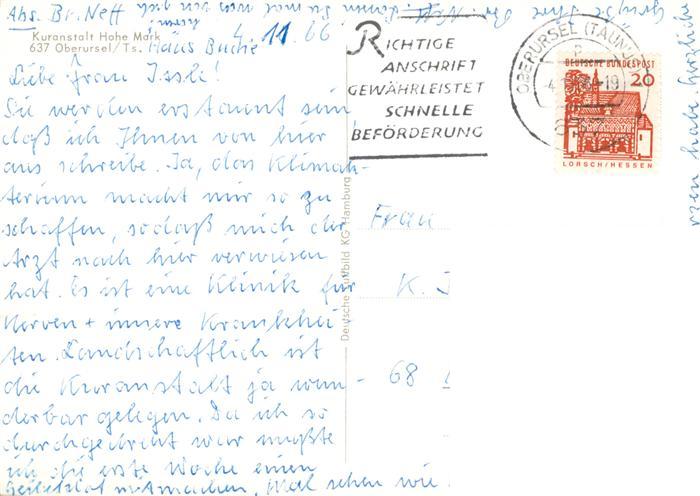 Abs. Br. Neff
4.11.66
Kuranstalt Hohe Mark
637 Oberursel/Ts.
Haus Buche
Liebe Frau Issle!
Sie werden erstaunt sein,
daß ich Ihnen von hier
aus schreibe. Ja, das Klimak-
terium macht mir so zu
schaffen, sodaß mich der
Arzt nach hier verwiesen
hat. Es ist eine Klinik für
Nerven + innere Krankhei-
ten. Landschaftlich ist
die Kuranstalt ja wun-
derbar gelegen. Da ich so
durchgedreht war mußte
ich die erste Woche einen
mitmachen. Mal sehen wie
Grüße Ihre Br. Neff
rzen
herzliche
RICHTIGE
ANSCHRIFT
GEWÄHRLEISTET
SCHNELLE
BEFÖRDERUNG
OBERURSEL (TAUNUS)
DEUTSCHE BUNDESPOST
20
LORSCH/HESSEN
Deutsche Luftbild KG Hamburg
Frau
K. I
68